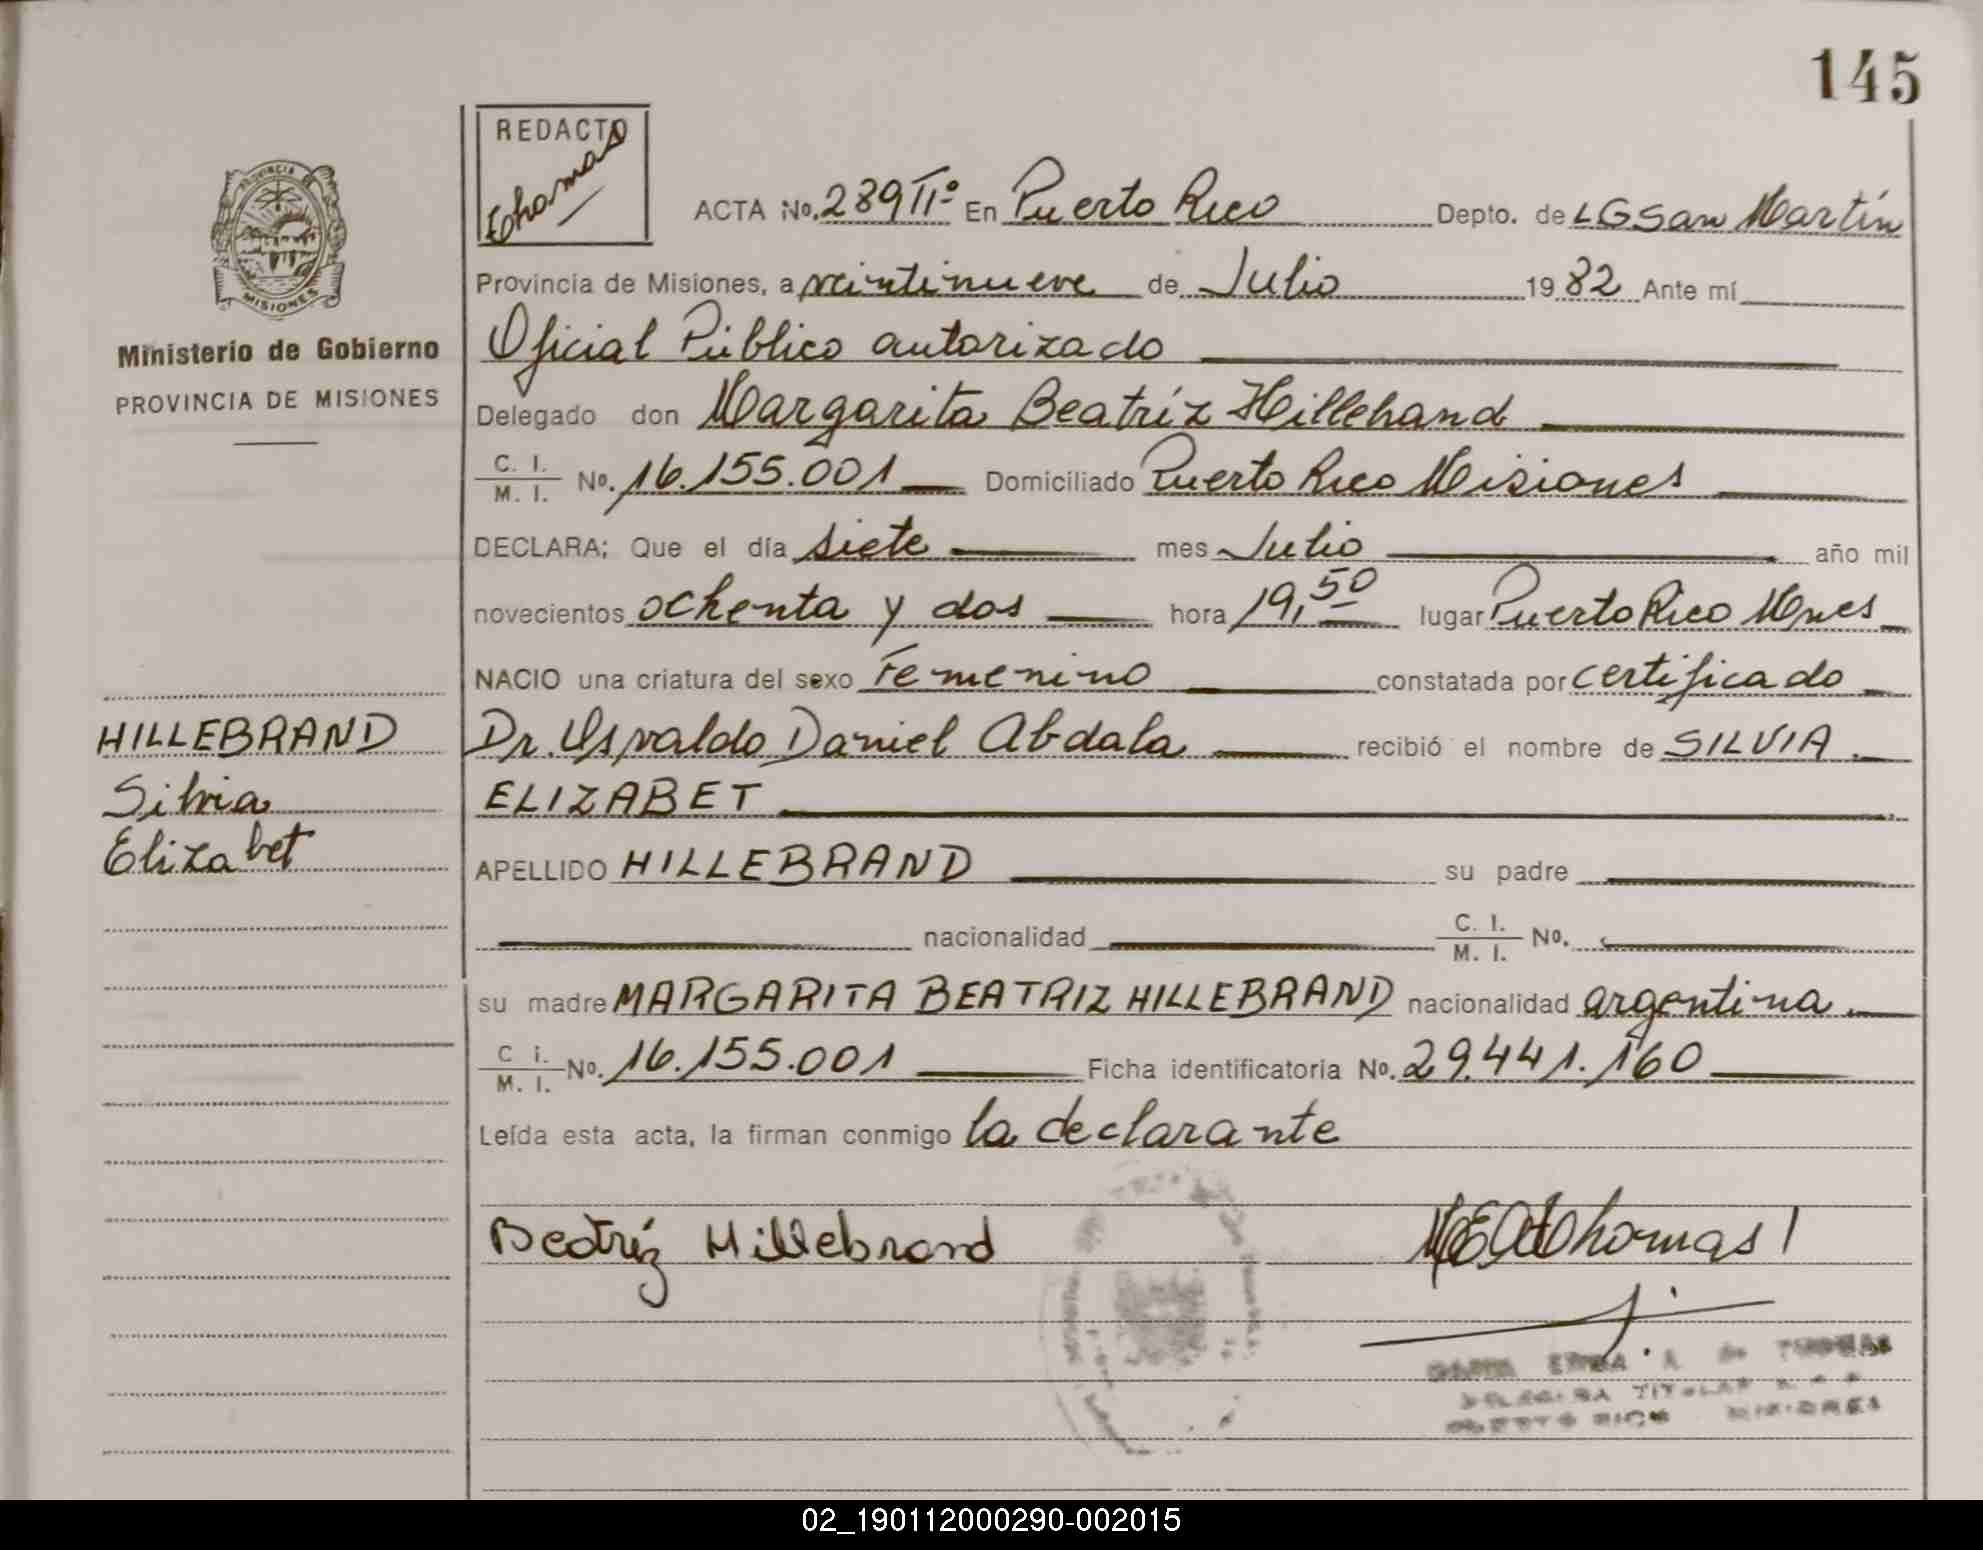 145
REDACTO
Thomas
ACTA No. 289 IIº En Puerto Rico Depto. de LG San Martín
PROVINCIA DE
MISIONES
Provincia de Misiones, a veintinueve de Julio 1982 Ante mí
Ministerio de Gobierno
Oficial Público autorizado
PROVINCIA DE MISIONES
Delegado don Margarita Beatríz Hillehand
C. I.
M. I. No. 16.155.001 Domiciliado Puerto Rico Misiones
DECLARA; Que el día siete mes Julio año mil
novecientos ochenta y dos hora 19,50 lugar Puerto Rico Mnes
NACIO una criatura del sexo Femenino constatada por certificado
HILLEBRAND
Dr. Osvaldo Daniel Abdala recibió el nombre de SILVIA
Silvia
ELIZABET
Elizabet
APELLIDO HILLEBRAND su padre
nacionalidad C. I.
M. I. No.
su madre MARGARITA BEATRIZ HILLEBRAND nacionalidad argentina
C i.
M. I. No. 16.155.001 Ficha identificatoria No. 29.441.160
Leída esta acta, la firman conmigo la declarante
Beatríz Hillebrand
Thomas
TITULAR
PUERTO RICO MISIONES
02_190112000290-002015